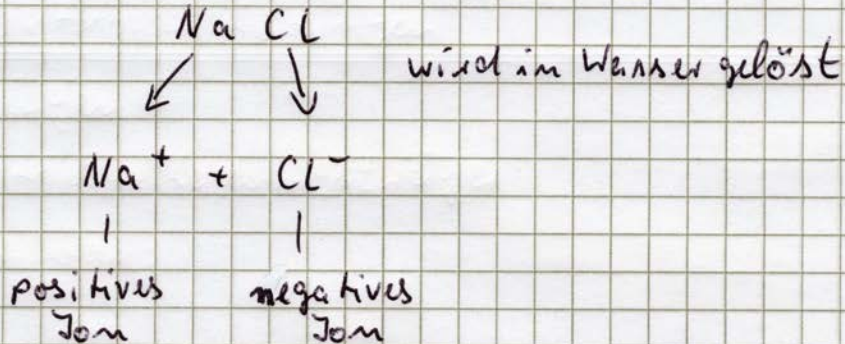 Na Cl
wird in Wasser gelöst
Na⁺ + Cl⁻
positives negatives
Ion Ion